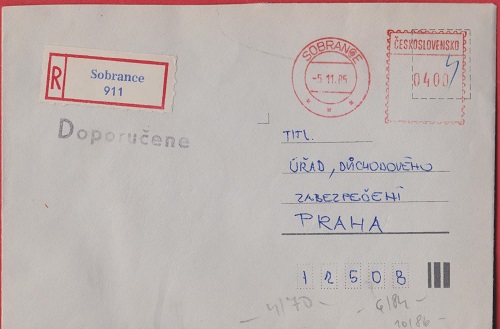 R
Sobrance
911
Doporučene
SOBRANCE
-5.11.86
ČESKOSLOVENSKO
0400
TITL.
ÚŘAD, DŮCHODOVÉHO
ZABEZPEČENÍ
PRAHA
12508
4/70
6/84
10/86